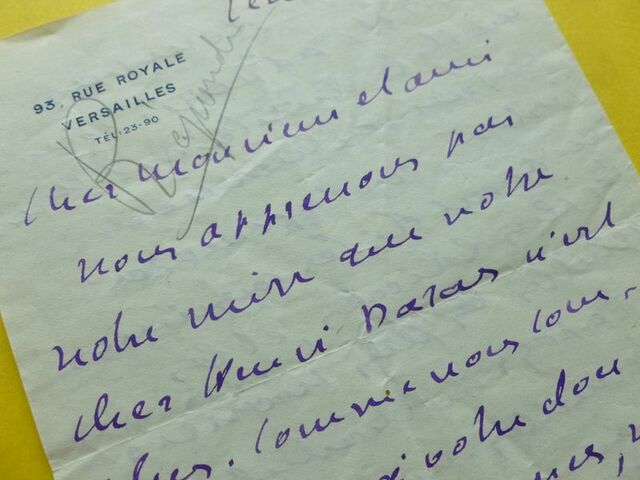 93, RUE ROYALE
VERSAILLES
TÉL: 23-90
Répondu
Cher Monsieur et ami
nous apprenons par
notre mère que notre
cher Henri Daras n'est
plus. Comme nous com-
votre dou